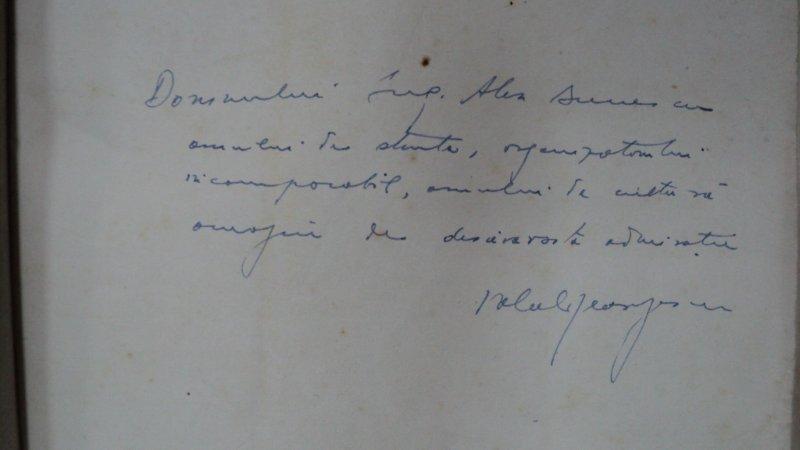 Domnului Ing. Alex
omului de știință, organizatorului
incomparabil, omului de cultură
omagiu de desăvârșită admirație